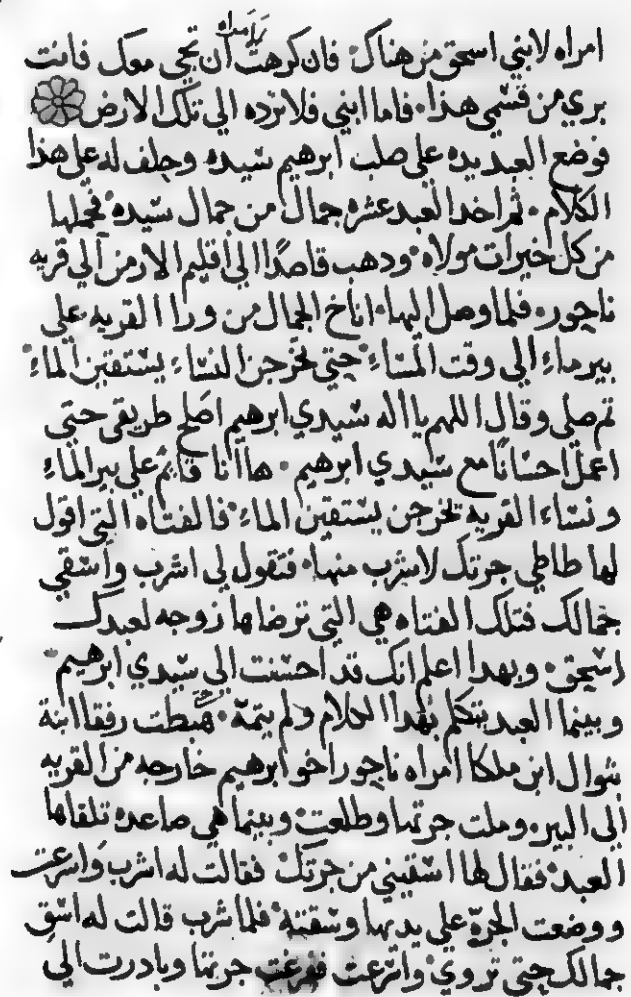 امراه لابني اسحق من هناك. فان كرهت المراه ان تجي معك فانت
بري من قسمي هذا. فاما ابني فلا ترده الي تلك الارض
فوضع العبد يده علي صلب ابرهيم سيده وحلف له علي هذا
الكلام. ثم اخد العبد عشره جمال من جمال سيده فحملها
من كل خيرات مولاه ودهب قاصدًا الي اقليم الارمن الي قريه
ناحور. فلما وصل اليها. اناخ الجمال من ورا القريه علي
بير ماء الي وقت المساء حتي تخرجن النساء يستقين الماء
تم صلي وقال اللهم يا اله سيدي ابرهيم اصلح طريقي حتي
اعمل احسانًا مع سيدي ابرهيم. ها انا قايم علي بير الماء
ونساء القريه تخرجن يستقين الماء فالفتاه التي اقول
لها طاطي جرتك لاشرب منها. فتقول لي اشرب واسقي
جمالك فتلك الفتاه هي التي ترضاها زوجه لعبدك
اسحق. وبهدا اعلم انك قد احسنت الي سيدي ابرهيم
وبينما العبد يتكلم بهدا الكلام ولم يتمه. هبطت رفقا ابنة
بتوال ابن ملكا امراه ناحور اخو ابرهيم خارجه من القريه
الي البير. وملت جرتها وطلعت وبينما هي صاعده تلقاها
العبد فقال لها اسقيني من جرتك فقالت له اشرب واسرعت
ووضعت الجرّه علي يديها وسقته فلما شرب قالت له اسق
جمالك حتي تروي واسرعت فرغت جرتها وبادرت الي